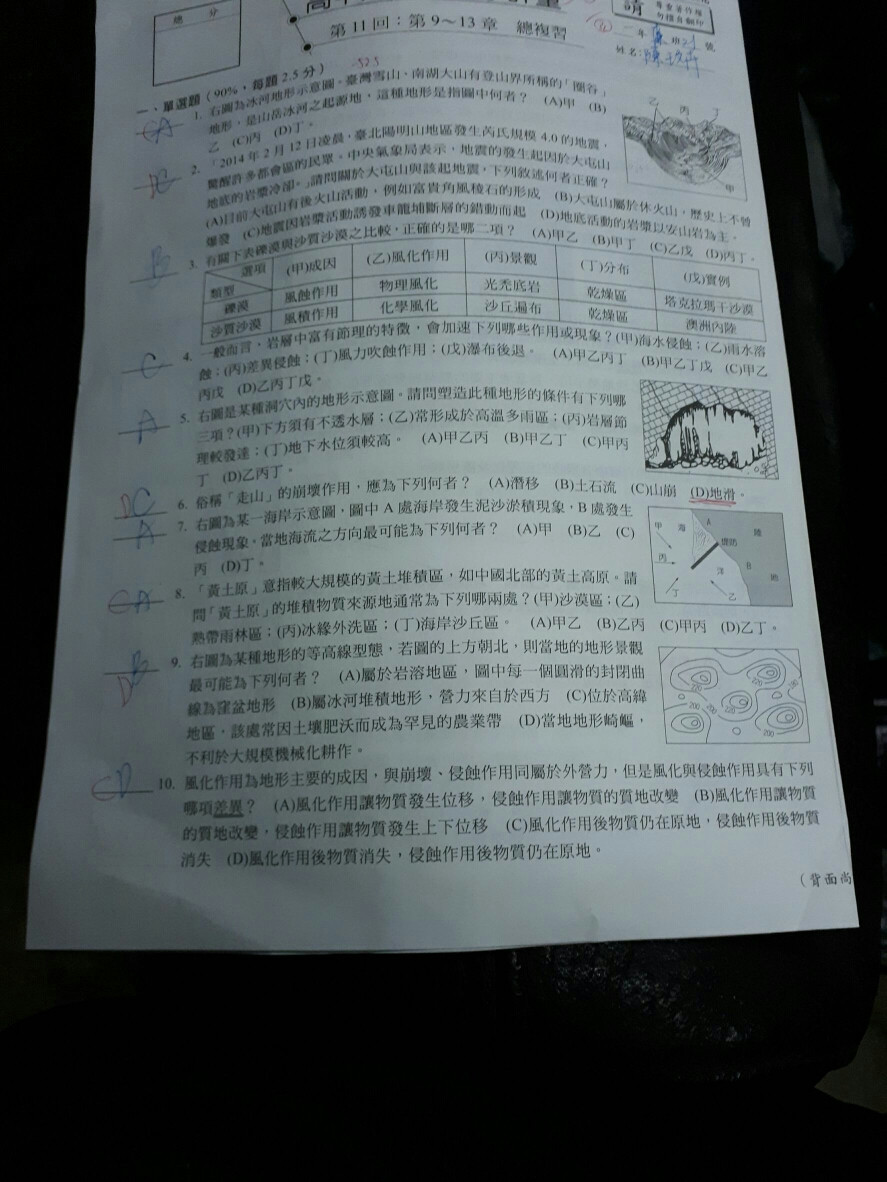 總 分
尊重著作權
勿擅自翻印
第 11 回：第 9～13 章　總複習
姓名：
一、單選題（90%，每題 2.5 分）
1. 右圖為冰河地形示意圖。臺灣雪山、南湖大山有登山界所稱的「圈谷」
地形，是山岳冰河之起源地，這種地形是指圖中何者？　(A)甲　(B)
乙　(C)丙　(D)丁。
乙 丙 丁
甲
2. 「2014 年 2 月 12 日凌晨，臺北陽明山地區發生芮氏規模 4.0 的地震，
驚醒許多都會區的民眾。中央氣象局表示，地震的發生起因於大屯山
地底的岩漿冷卻。」請問關於大屯山與該起地震，下列敘述何者正確？
(A)目前大屯山有後火山活動，例如富貴角風稜石的形成　(B)大屯山屬於休火山，歷史上不曾
爆發　(C)地震因岩漿活動誘發車龍埔斷層的錯動而起　(D)地底活動的岩漿以安山岩為主。
3. 有關下表礫漠與沙質沙漠之比較，正確的是哪二項？　(A)甲乙　(B)甲丁　(C)乙戊　(D)丙丁。
選項 類型 (甲)成因 (乙)風化作用 (丙)景觀 (丁)分布 (戊)實例
礫漠 風蝕作用 物理風化 光禿底岩 乾燥區 塔克拉瑪干沙漠
沙質沙漠 風積作用 化學風化 沙丘遍布 乾燥區 澳洲內陸
4. 一般而言，岩層中富有節理的特徵，會加速下列哪些作用或現象？(甲)海水侵蝕；(乙)雨水溶
蝕；(丙)差異侵蝕；(丁)風力吹蝕作用；(戊)瀑布後退。　(A)甲乙丙丁　(B)甲乙丁戊　(C)甲乙
丙戊　(D)乙丙丁戊。
5. 右圖是某種洞穴內的地形示意圖。請問塑造此種地形的條件有下列哪
三項？(甲)下方須有不透水層；(乙)常形成於高溫多雨區；(丙)岩層節
理較發達；(丁)地下水位須較高。　(A)甲乙丙　(B)甲乙丁　(C)甲丙
丁　(D)乙丙丁。
6. 俗稱「走山」的崩壞作用，應為下列何者？　(A)潛移　(B)土石流　(C)山崩　(D)地滑。
7. 右圖為某一海岸示意圖，圖中 A 處海岸發生泥沙淤積現象，B 處發生
侵蝕現象。當地海流之方向最可能為下列何者？　(A)甲　(B)乙　(C)
丙　(D)丁。
甲 海 A 陸
丙 堤防
洋 B 地
丁 乙
8. 「黃土原」意指較大規模的黃土堆積區，如中國北部的黃土高原。請
問「黃土原」的堆積物質來源地通常為下列哪兩處？(甲)沙漠區；(乙)
熱帶雨林區；(丙)冰緣外洗區；(丁)海岸沙丘區。　(A)甲乙　(B)乙丙　(C)甲丙　(D)乙丁。
9. 右圖為某種地形的等高線型態，若圖的上方朝北，則當地的地形景觀
最可能為下列何者？　(A)屬於岩溶地區，圖中每一個圓滑的封閉曲
線為窪盆地形　(B)屬冰河堆積地形，營力來自於西方　(C)位於高緯
地區，該處常因土壤肥沃而成為罕見的農業帶　(D)當地地形崎嶇，
不利於大規模機械化耕作。
220 220 180
200 220 200
200
10. 風化作用為地形主要的成因，與崩壞、侵蝕作用同屬於外營力，但是風化與侵蝕作用具有下列
哪項差異？　(A)風化作用讓物質發生位移，侵蝕作用讓物質的質地改變　(B)風化作用讓物質
的質地改變，侵蝕作用讓物質發生上下位移　(C)風化作用後物質仍在原地，侵蝕作用後物質
消失　(D)風化作用後物質消失，侵蝕作用後物質仍在原地。
（背面尚